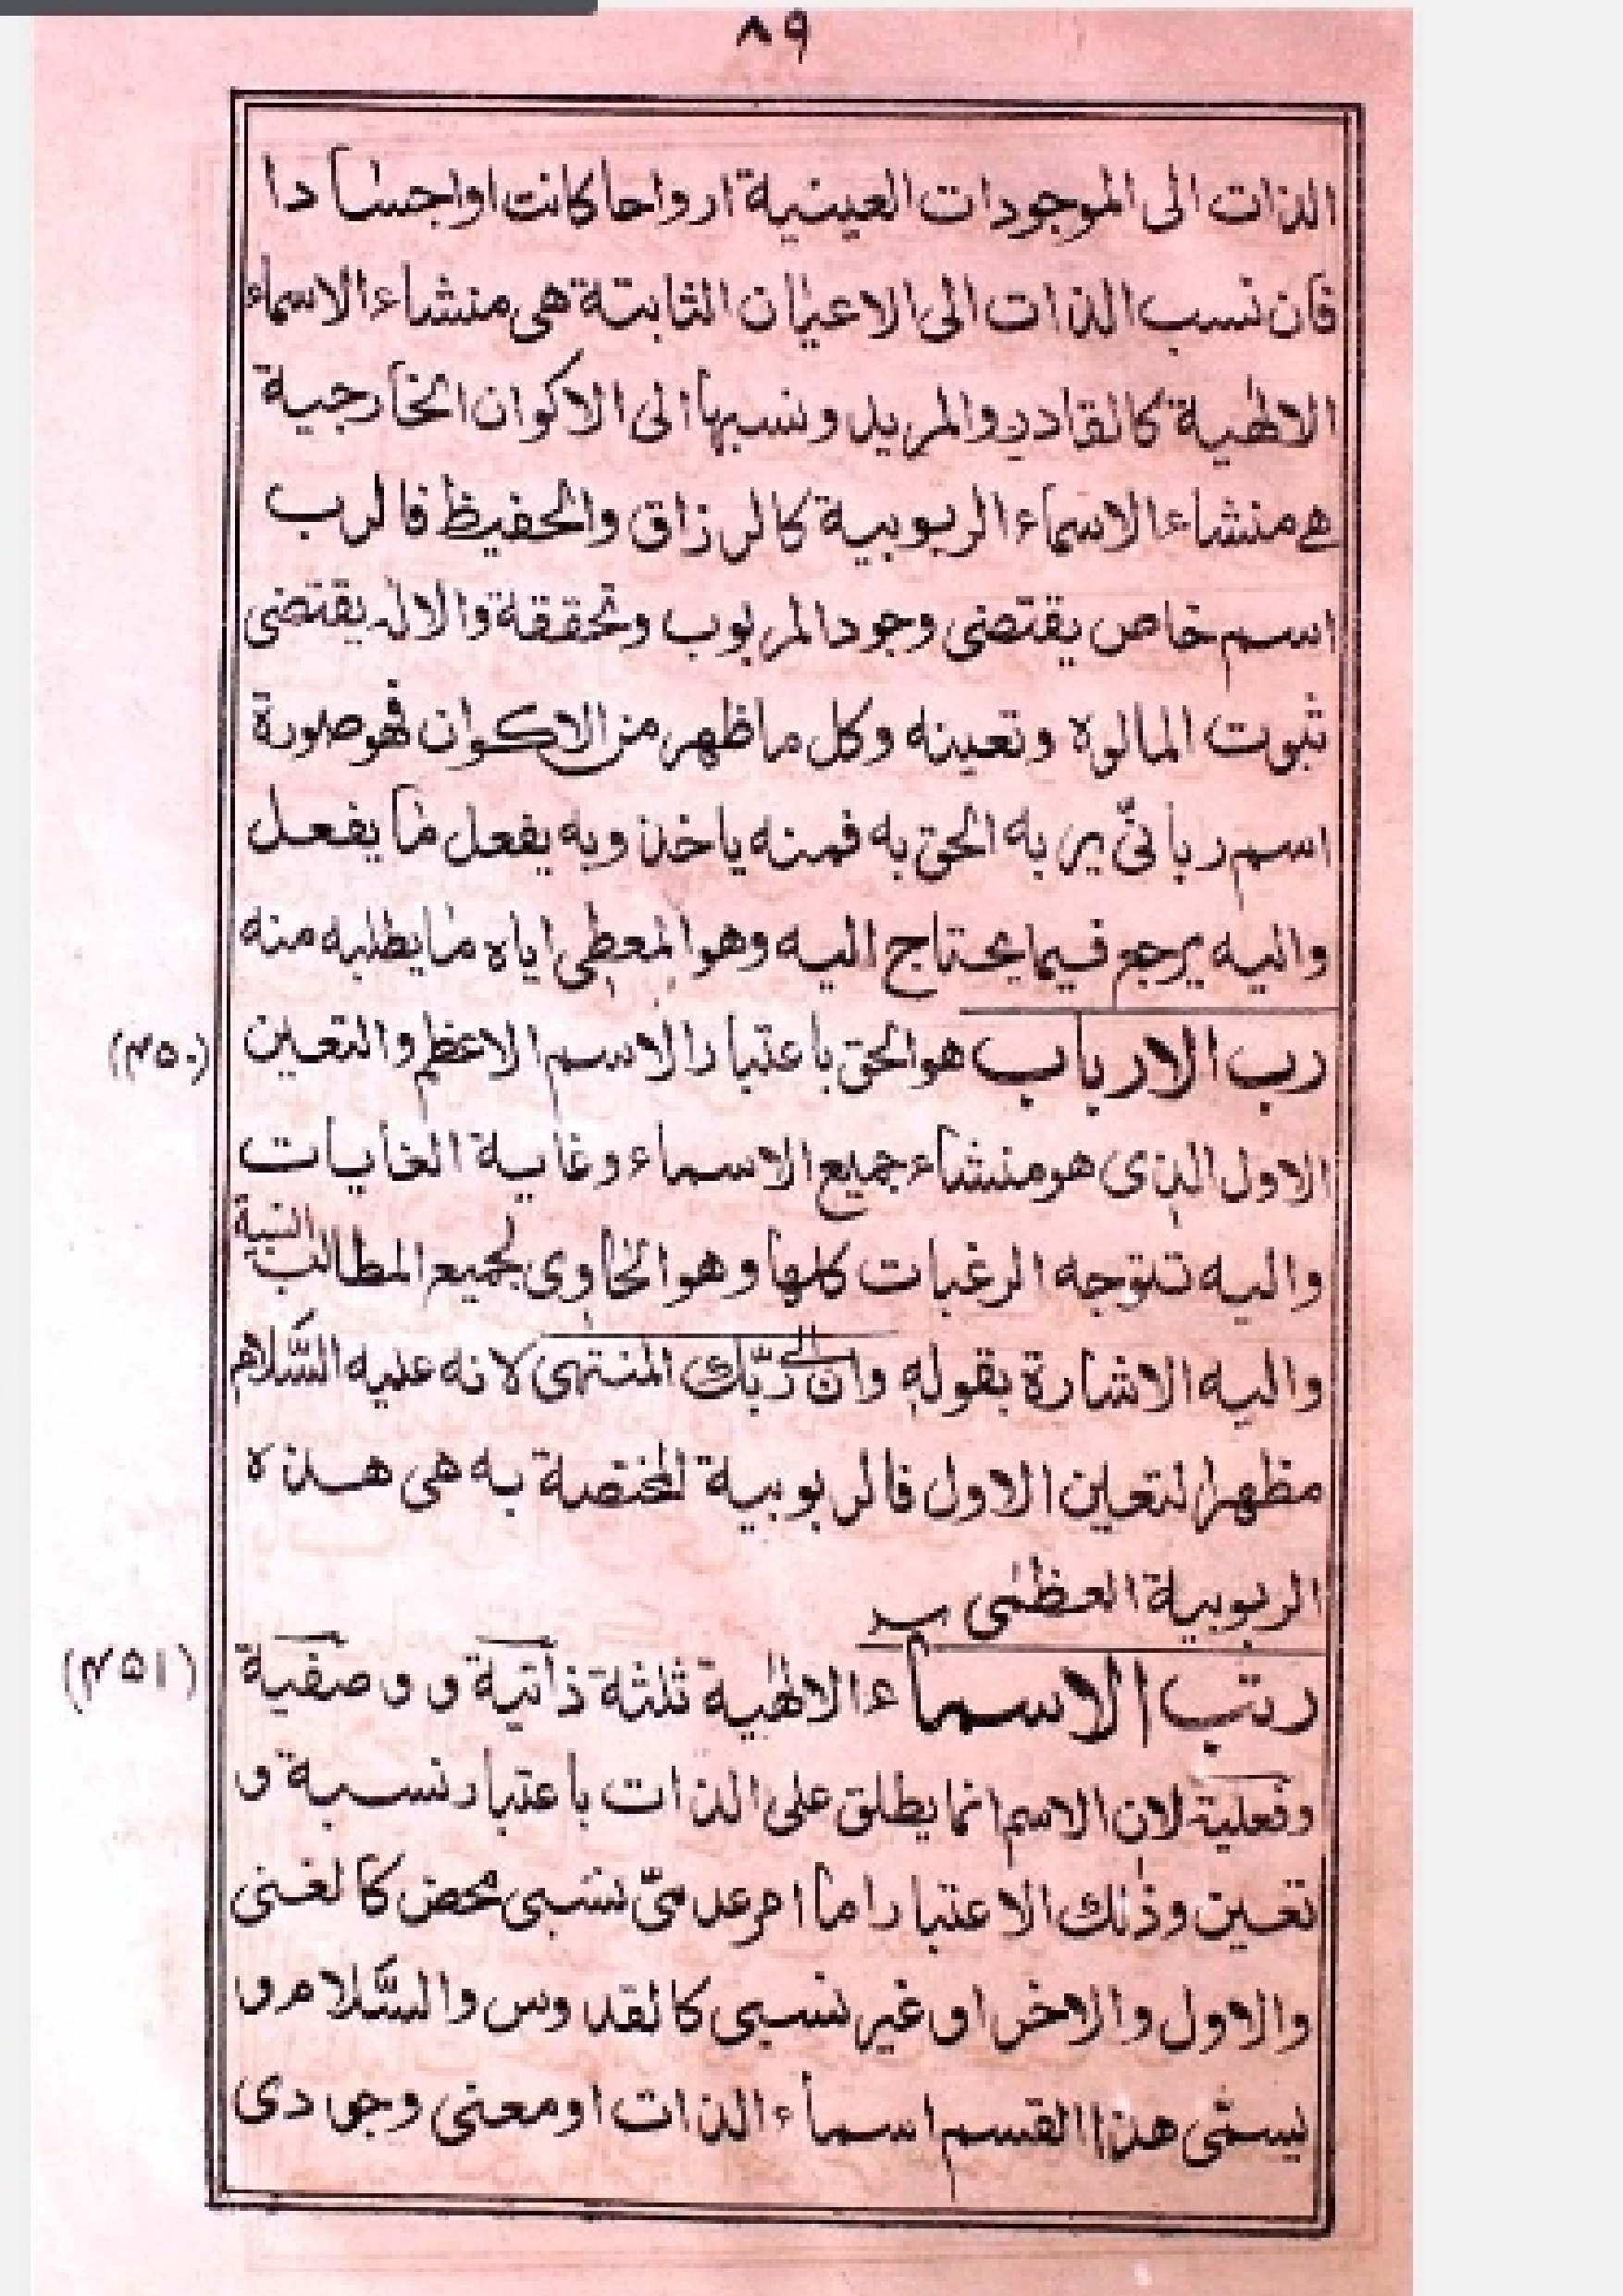 ٨٩
الذات الى الموجودات العينية ارواحا كانت او اجسادا
فان نسب الذات الى الاعيان الثابتة هى منشاء الاسماء
الالٰهية كالقادر والمريد ونسبها الى الاكوان الخارجية
هے منشاء الاسماء الربوبية كالرزاق والحفيظ فالرب
اسم خاص يقتضى وجود المربوب وتحققة والالٰه يقتضى
ثبوت المالوه وتعينه وكل ما ظهر من الاكوان فهو صورة
اسم ربانىّ يربه الحق به فمنه ياخذ وبه يفعل ما يفعل
واليه يرجع فيما يحتاج اليه وهو المعطى اياه ما يطلبه منه
رب الارباب هو الحق باعتبار الاسم الاعظم والتعين
(۴۵۰)
الاول الذى هو منشاء جميع الاسماء وغاية الغايات
واليه تتوجه الرغبات كلها وهو الحاوى لجميع المطالب النسبية
واليه الاشارة بقوله وان الى ربّك المنتهى لانه عليه السَّلام
مظهر التعين الاول فالربوبية المختصة به هى هذه
الربوبية العظمٰى
رتب الاسماء الالٰهية ثلثة ذاتية و وصفية
(۴۵۱)
وفعلية لان الاسم انما يطلق على الذات باعتبار نسبة و
تعين وذٰلك الاعتبار اما امر عدمىّ نسبى محض كالغنى
والاول والاخر او غير نسبى كالقدوس والسَّلام و
يسمّى هذا القسم اسماء الذات او معنى وجودى